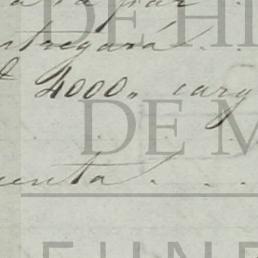 para
entregará . . .
4000,, carg
cuenta . . .
DE HI
DE M
FUNE